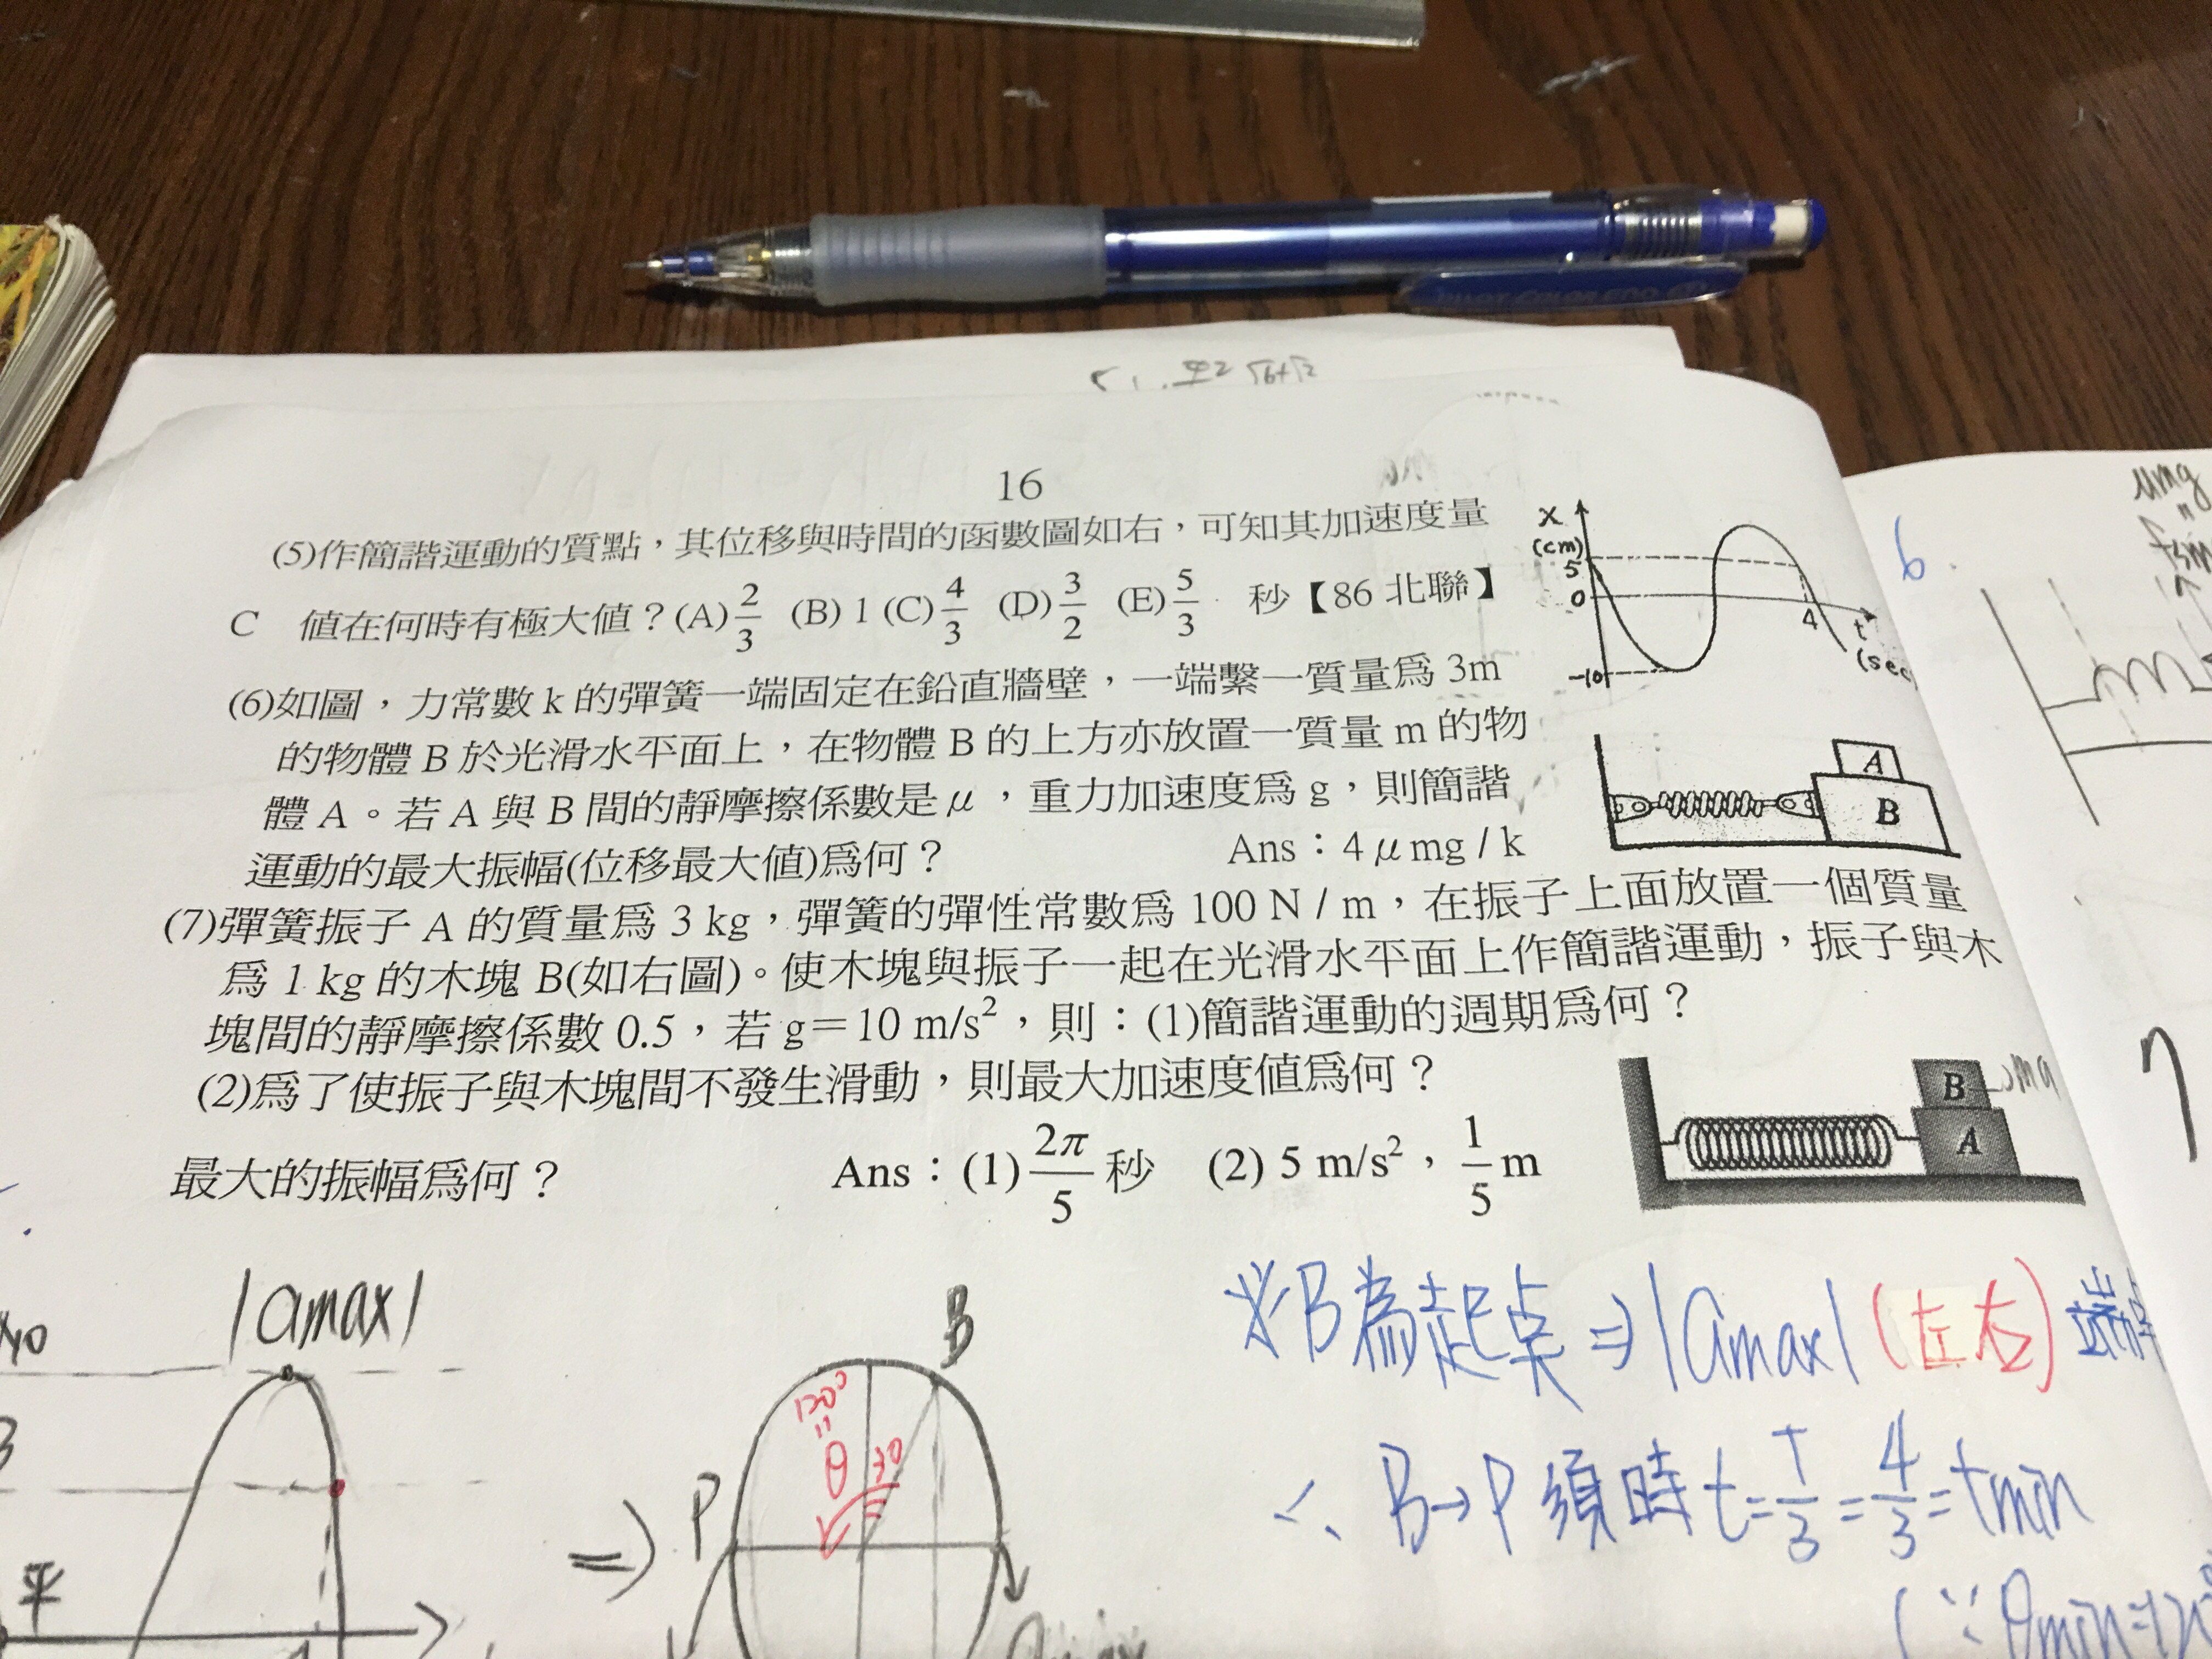 16
(5)作簡諧運動的質點，其位移與時間的函數圖如右，可知其加速度量
C 值在何時有極大值？(A) 2/3 (B) 1 (C) 4/3 (D) 3/2 (E) 5/3 秒【86 北聯】
x
(cm)
5
0
-10
4
t
(sec
(6)如圖，力常數 k 的彈簧一端固定在鉛直牆壁，一端繫一質量為 3m
的物體 B 於光滑水平面上，在物體 B 的上方亦放置一質量 m 的物
體 A。若 A 與 B 間的靜摩擦係數是 μ，重力加速度為 g，則簡諧
運動的最大振幅(位移最大值)為何？ Ans：4μmg / k
A
B
(7)彈簧振子 A 的質量為 3 kg，彈簧的彈性常數為 100 N / m，在振子上面放置一個質量
為 1 kg 的木塊 B(如右圖)。使木塊與振子一起在光滑水平面上作簡諧運動，振子與木
塊間的靜摩擦係數 0.5，若 g＝10 m/s²，則：(1)簡諧運動的週期為何？
(2)為了使振子與木塊間不發生滑動，則最大加速度值為何？
最大的振幅為何？ Ans：(1) 2π/5 秒 (2) 5 m/s²，1/5 m
B
A
6.
μmg
7
|amax|
平
⇒
P
B
120°
=
θ
30
※B為起点⇒|amax|(左右)端
∴ B→P 須時 t=T/3=4/3=tmin